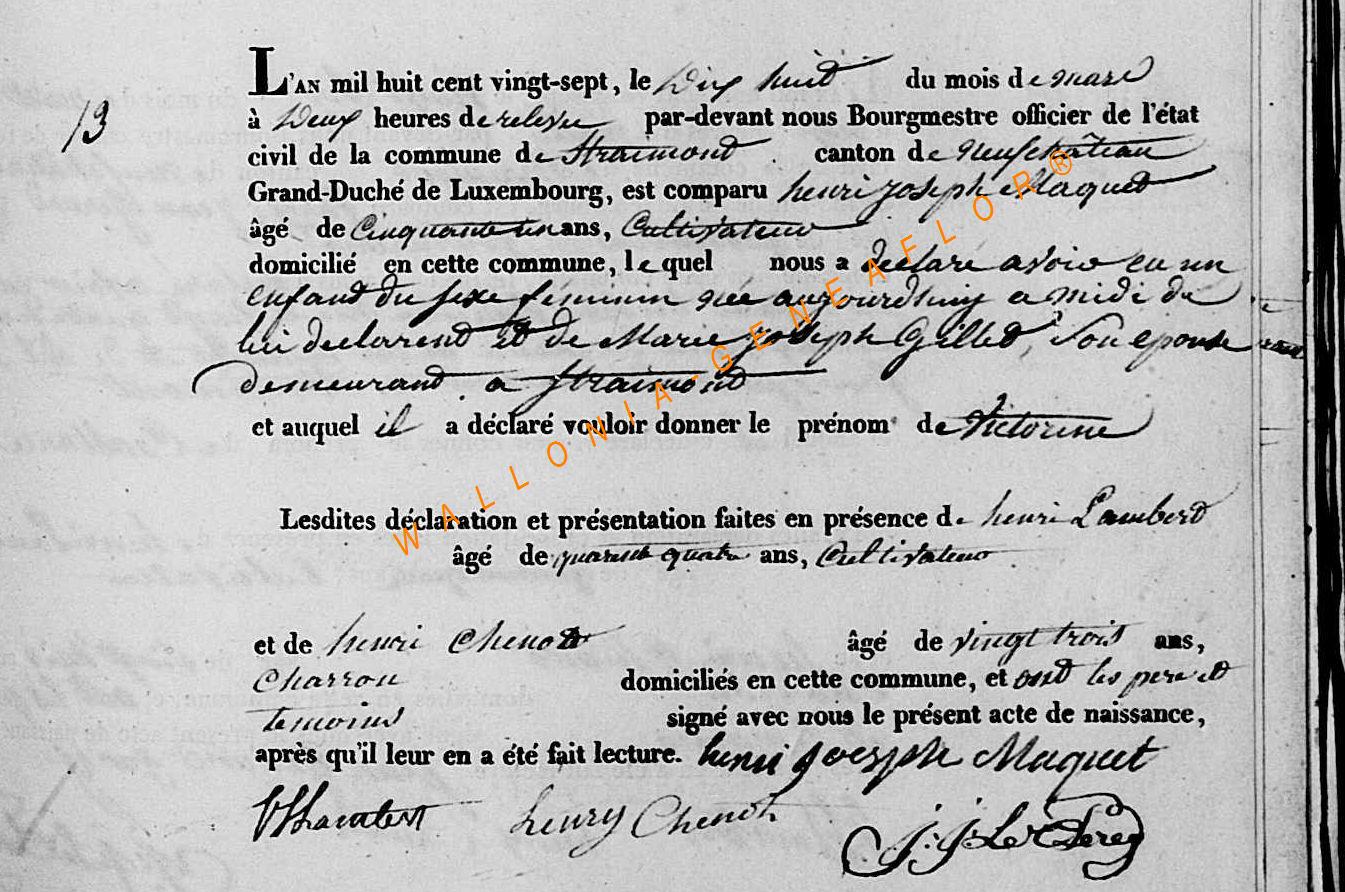 L'AN mil huit cent vingt-sept, le dix huit du mois de mars
13
à deux heures de relevée par-devant nous Bourgmestre officier de l'état
civil de la commune de Straimont canton de Neufchâteau
Grand-Duché de Luxembourg, est comparu henri joseph Maquet
âgé de Cinquante un ans, Cultivateur
domicilié en cette commune, lequel nous a declaré avoir eu un
enfant du sexe feminin née aujourdhuy a midi de
lui declarant et de Marie joseph Gillet, son epouse
demeurant a Straimont
et auquel il a déclaré vouloir donner le prénom de Victorine
Lesdites déclaration et présentation faites en présence de henri Lambert
âgé de quarante quatre ans, Cultivateur
et de henri Chenot âgé de vingt trois ans,
Charron domiciliés en cette commune, et ont les pere et
temoins signé avec nous le présent acte de naissance,
après qu'il leur en a été fait lecture. henri joesph Maquet
Lambert henry Chenot J. J. Leclereq
WALLONIA-GENEAFLOR®